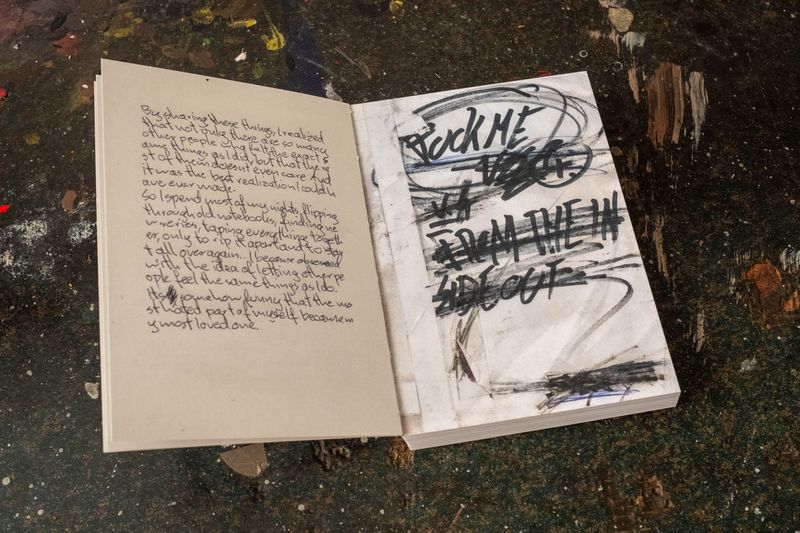 By sharing these things, I realized
that not only there are so many
other people who felt the exact s
ame things as I did, but that the re
st of them doesn't even care. And
it was the best realization I could h
ave ever made.
So I spend most of my nights, flipping
through old notebooks, finding ne
w series, taping everything togeth
er, only to rip it apart and to star
t all over again. I became obsessed
with the idea of letting other pe
ople feel the same things as I do.
It's somehow funny that the mo
st hated part of myself became m
y most loved one.
FUCK ME
UP
FROM THE IN
SIDE OUT